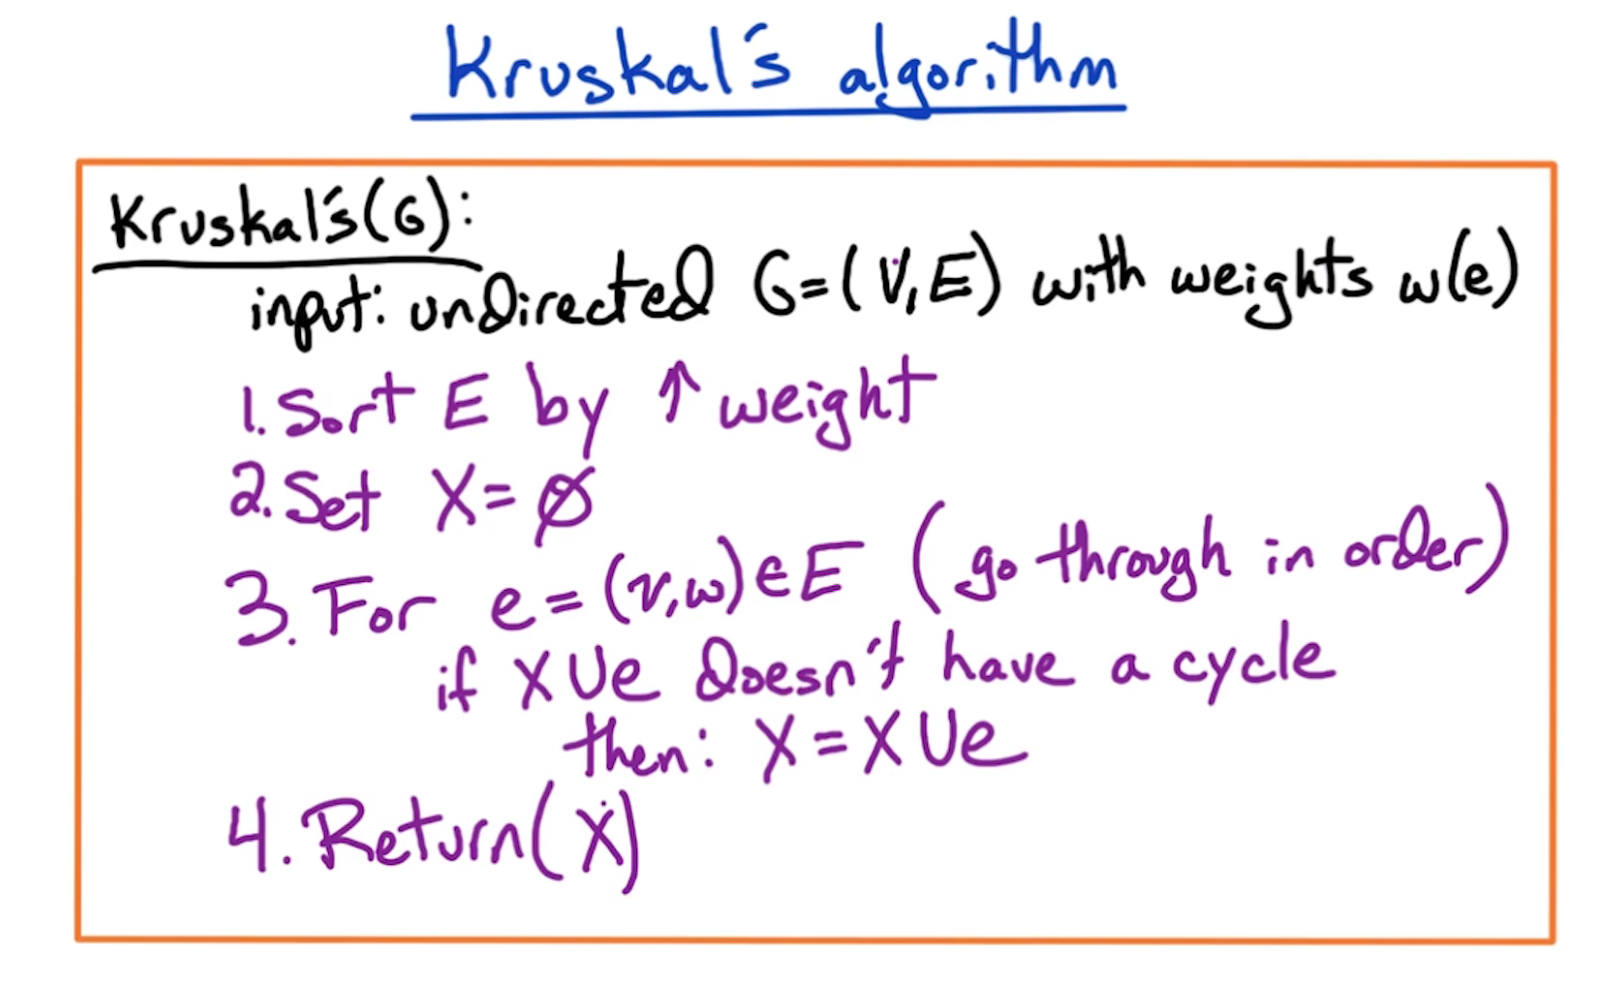 Kruskal's algorithm
Kruskal's(G):
input: undirected G=(V,E) with weights w(e)
1. Sort E by ↑ weight
2. Set X=∅
3. For e=(v,w)∈E (go through in order)
if X∪e doesn't have a cycle
then: X=X∪e
4. Return(X)